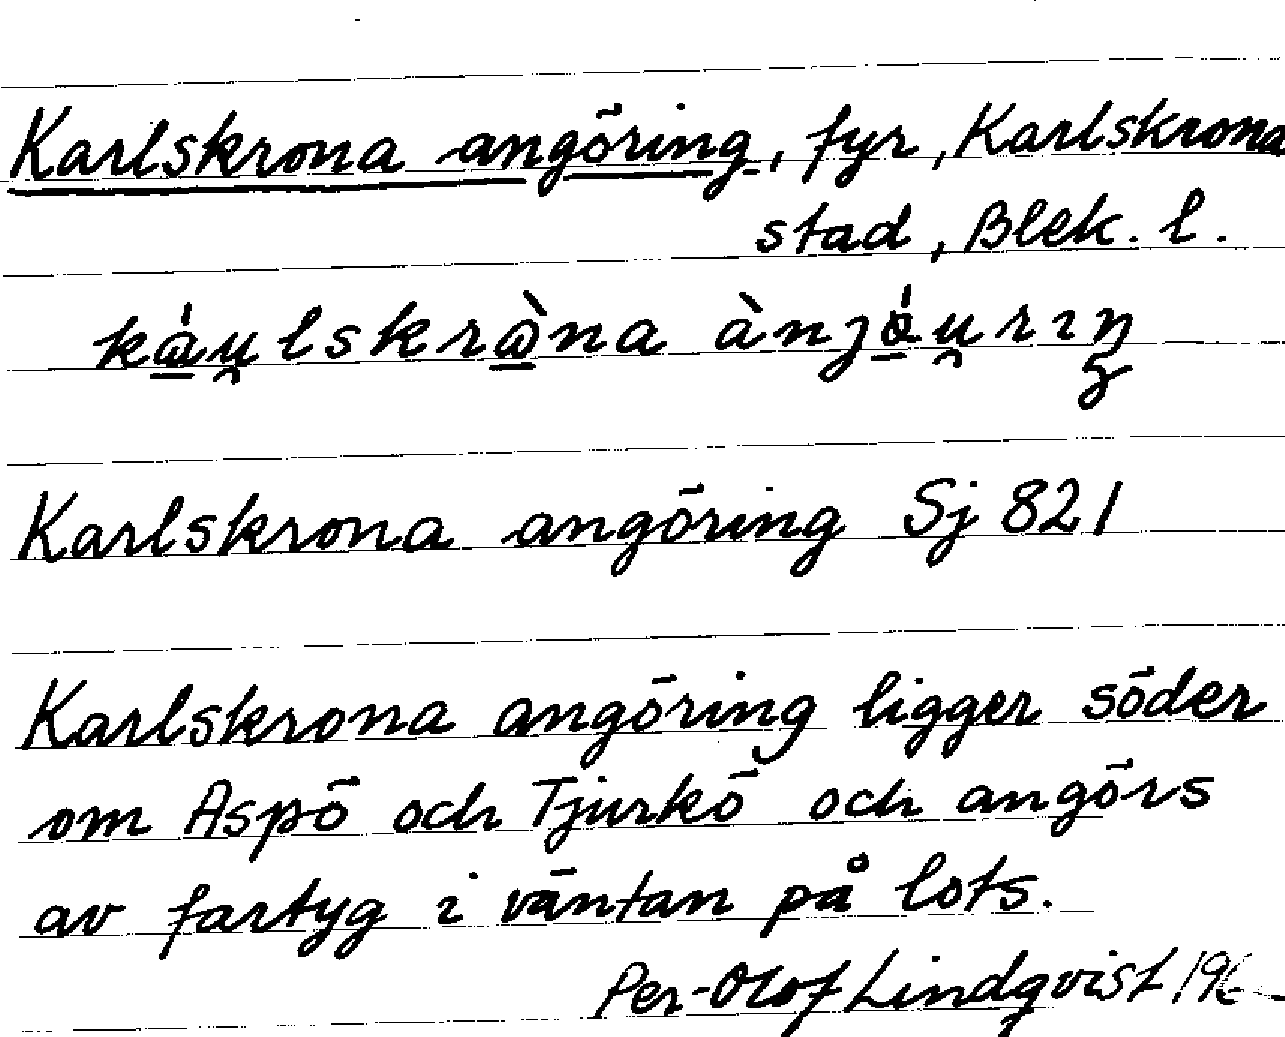 Karlskrona angöring, fyr, Karlskrona
stad, Blek. l.
Karlskrona angöring Sj 821
Karlskrona angöring ligger söder
om Aspö och Tjurkö och angörs
av fartyg i väntan på lots.
Per-Olof Lindqvist